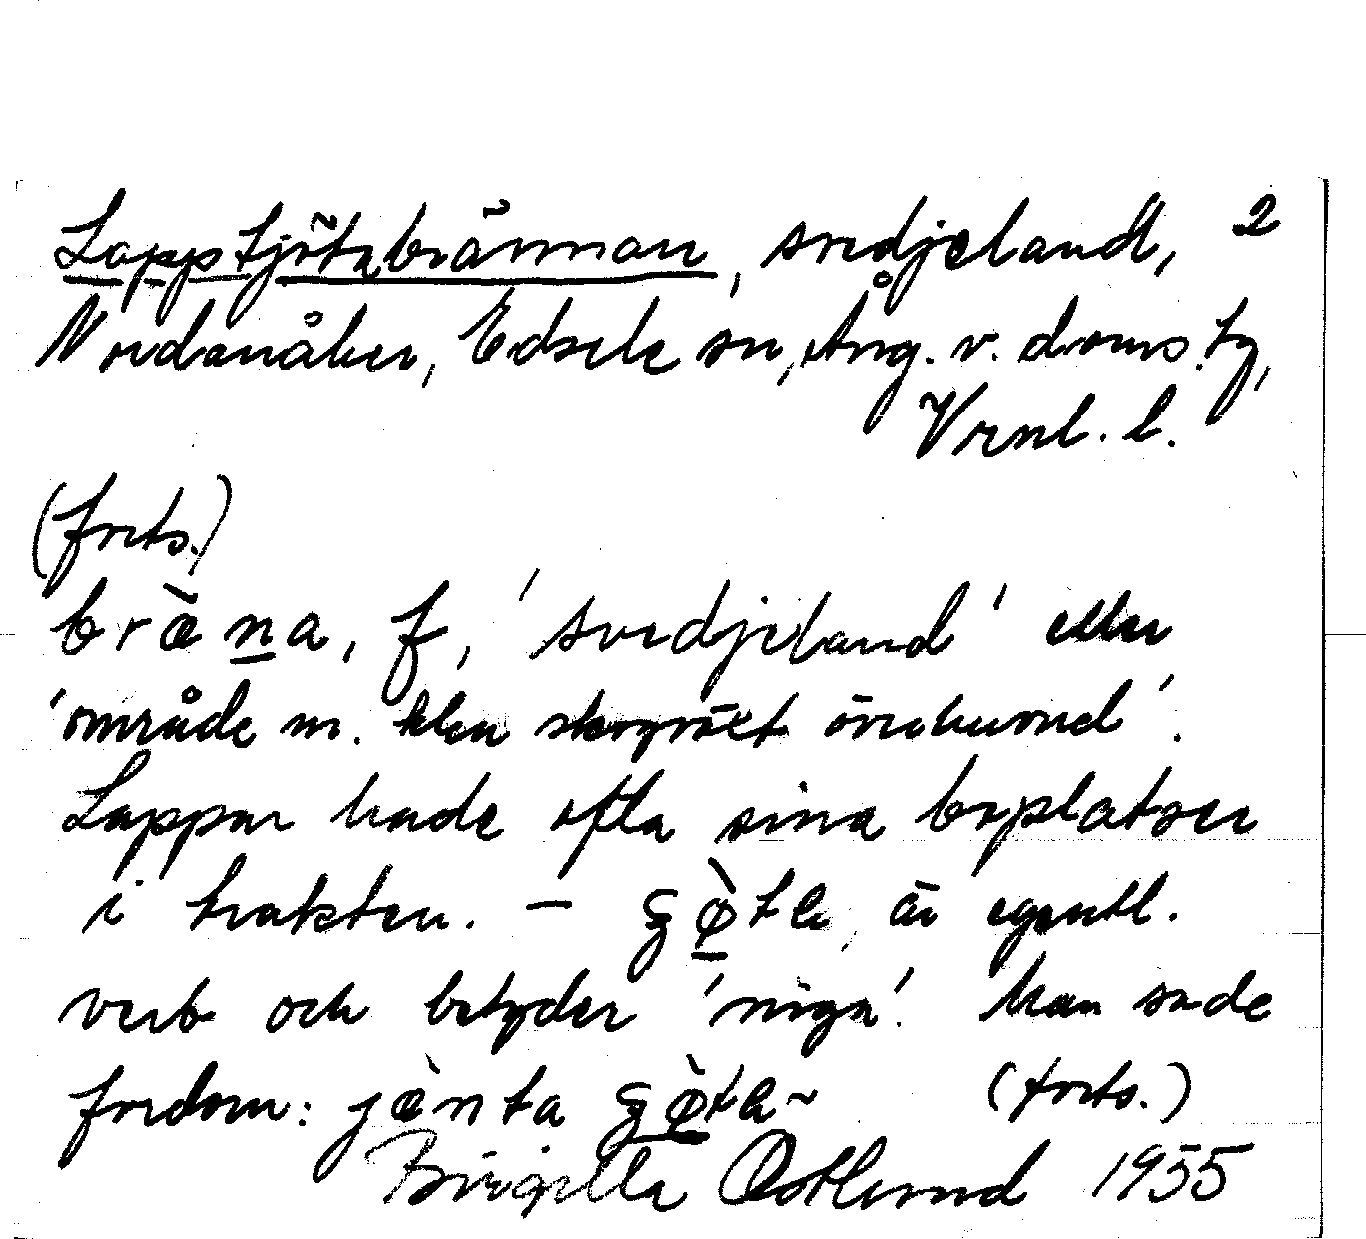 Lapptjötabrännan, svedjeland, 2
Nordanåker, Edsele sn, Ång. v. doms. tg,
Vrnl. l.
(forts.)
bràna, f, 'svedjeland' eller
'område m. klen skogväxt ovanpå'.
Lappar hade ofta sina boplatser
i trakten. —
är egentl.
verb och betyder 'niga'. Man sade
fordom: jænta
(forts.)
Birgitta Östlund 1955